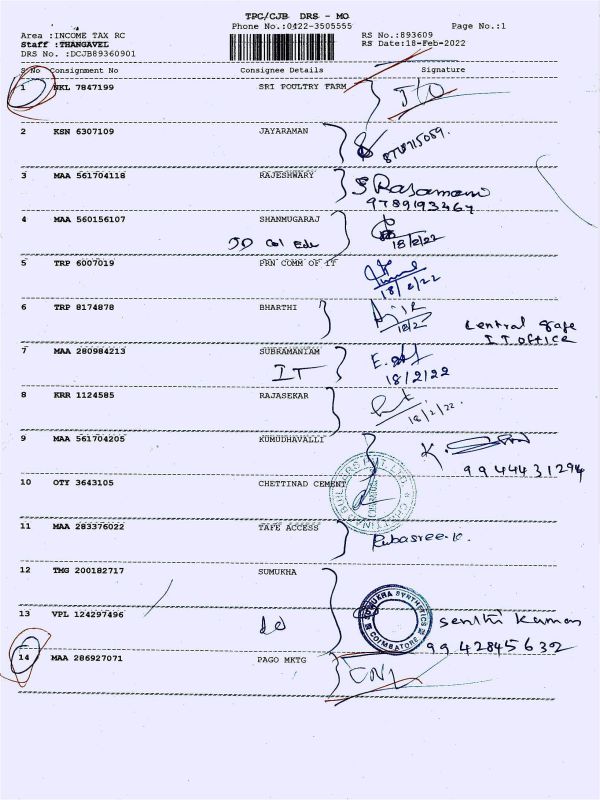 TPC/CJB DRS - MO
Phone No.:0422-3505555
Page No.:1
Area :INCOME TAX RC
RS No.:893609
Staff :THANGAVEL
RS Date:18-Feb-2022
DRS No. :DCJB89360901
S No Consignment No Consignee Details Signature
1 NKL 7847199 SRI POULTRY FARM
2 KSN 6307109 JAYARAMAN
3 MAA 561704118 RAJESHWARY
9789193467
4 MAA 560156107 SHANMUGARAJ
18/2/22
5 TRP 6007019 PRN COMM OF IT
18/2/22
6 TRP 8174878 BHARTHI
Central gate
IT office
7 MAA 280984213 SUBRAMANIAM
IT
18/2/22
8 KRR 1124585 RAJASEKAR
18/2/22.
9 MAA 561704205 KUMUDHAVALLI
9944431294
10 OTY 3643105 CHETTINAD CEMENT
11 MAA 283376022 TAFE ACCESS
Rubasree.K.
12 TMG 200182717 SUMUKHA
SUMUKHA SYNTHETICS
COIMBATORE
13 VPL 124297496 do
Senthil Kumar
9942845632
14 MAA 286927071 PAGO MKTG